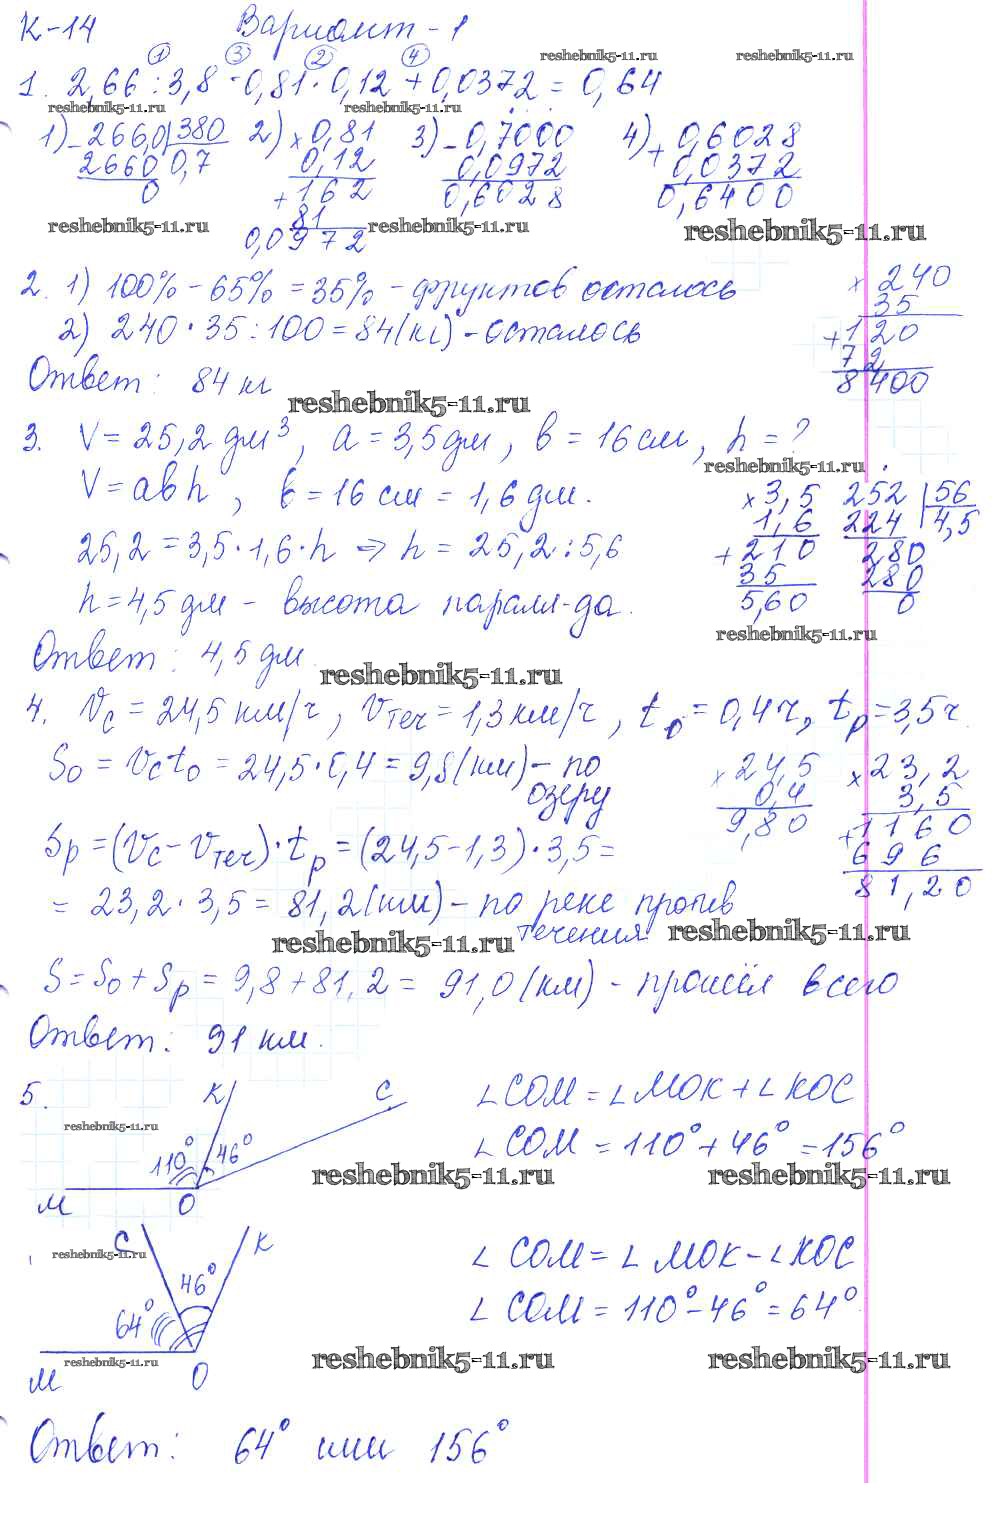 К-14 Вариант - 1
① ③ ② ④
reshebnik5-11.ru reshebnik5-11.ru
1. 2,66 : 3,8 - 0,81 · 0,12 + 0,0372 = 0,64
reshebnik5-11.ru reshebnik5-11.ru
1) - 266,0 | 380 2) × 0,81 3) - 0,7000 4) + 0,6028
2660 0,7 0,12 0,0972 0,0372
0 + 162 0,6028 0,6400
81
0,0972
reshebnik5-11.ru reshebnik5-11.ru reshebnik5-11.ru
2. 1) 100% - 65% = 35% - фруктов осталось × 240
35
2) 240 · 35 : 100 = 84(кг) - осталось + 120
72
Ответ: 84 кг 8400
reshebnik5-11.ru
3. V = 25,2 дм³, a = 3,5 дм, b = 16 см, h = ?
reshebnik5-11.ru
V = abh, b = 16 см = 1,6 дм. × 3,5 252 | 56
1,6 224 4,5
25,2 = 3,5 · 1,6 · h ⇒ h = 25,2 : 5,6 + 210 280
35 280
h = 4,5 дм - высота паралл-да. 5,60 0
reshebnik5-11.ru
Ответ: 4,5 дм.
reshebnik5-11.ru
4. Vc = 24,5 км/ч, Vтеч = 1,3 км/ч, to = 0,4 ч, tp = 3,5 ч.
So = Vc to = 24,5 · 0,4 = 9,8 (км) - по × 24,5 × 23,2
озеру 0,4 3,5
9,80 + 1160
Sp = (Vc - Vтеч) · tp = (24,5 - 1,3) · 3,5 = 696
= 23,2 · 3,5 = 81,2 (км) - по реке против 81,20
течения
reshebnik5-11.ru reshebnik5-11.ru
S = So + Sp = 9,8 + 81,2 = 91,0 (км) - прошёл всего
Ответ: 91 км.
5. K C ∠COM = ∠MOK + ∠KOC
reshebnik5-11.ru
110° 46° ∠COM = 110° + 46° = 156°
reshebnik5-11.ru reshebnik5-11.ru
M O
C K ∠COM = ∠MOK - ∠KOC
reshebnik5-11.ru
46°
64° ∠COM = 110° - 46° = 64°
reshebnik5-11.ru reshebnik5-11.ru reshebnik5-11.ru
M O
Ответ: 64° или 156°